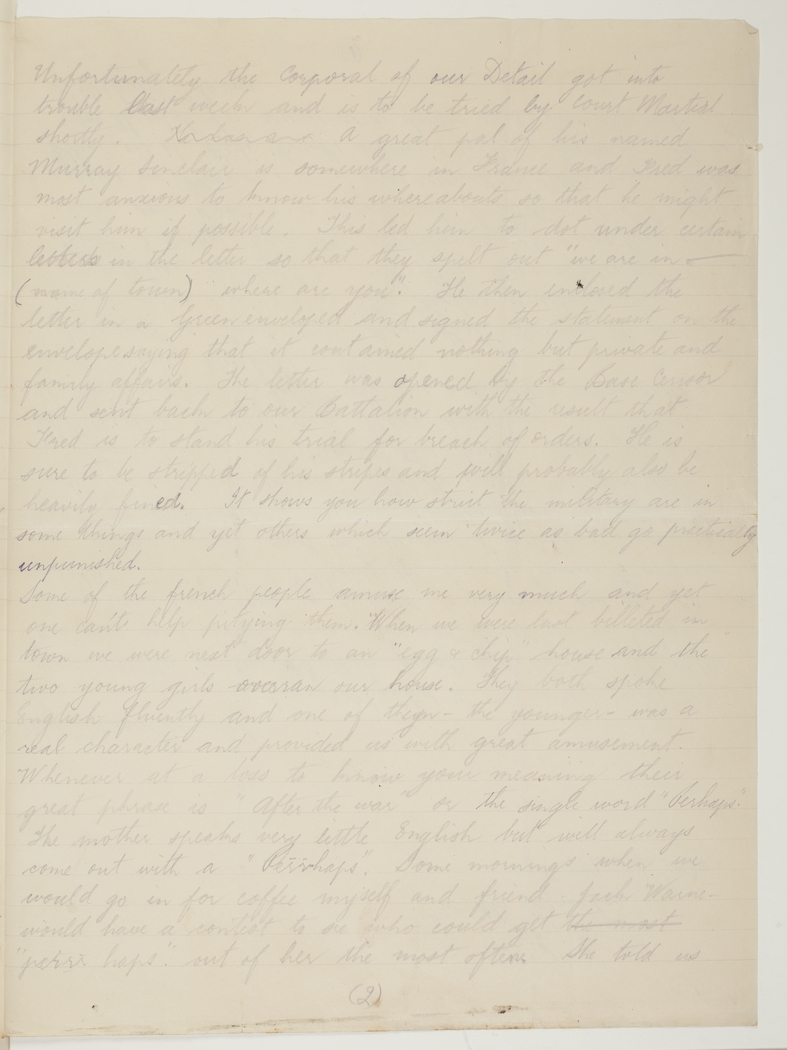 Unfortunately the Corporal of our Detail got into
trouble last week and is to be tried by Court Martial
shortly. A great pal of his named
Murray Sinclair is somewhere in France and Fred was
most anxious to know his whereabouts so that he might
visit him if possible. This led him to dot under certain
letters in the letter so that they spelt out "we are in —
(name of town) where are you". He then enclosed the
letter in a Green enveloped and signed the statement on the
envelope saying that it contained nothing but private and
family affairs. The letter was opened by the Base Censor
and sent back to our Battalion with the result that
Fred is to stand his trial for breach of orders. He is
sure to be stripped of his stripes and will probably also be
heavily fined. It shows you how strict the military are in
some things and yet others which seem twice as bad go practically
unpunished.
Some of the french people amuse me very much and yet
one can't help pitying them. When we were last billeted in
town we were next door to an "egg & chip" house and the
two young girls overran our house. They both spoke
English fluently and one of them – the younger – was a
real character and provided us with great amusement.
Whenever at a loss to know your meaning their
great phrase is "After the war" or the single word "Perhaps".
The mother speaks very little English but will always
come out with a "Perrhaps". Some mornings when we
would go in for coffee myself and friend Jack Warne-
would have a contest to see who could get the most
"perrr haps". out of her the most often. She told us
(2)